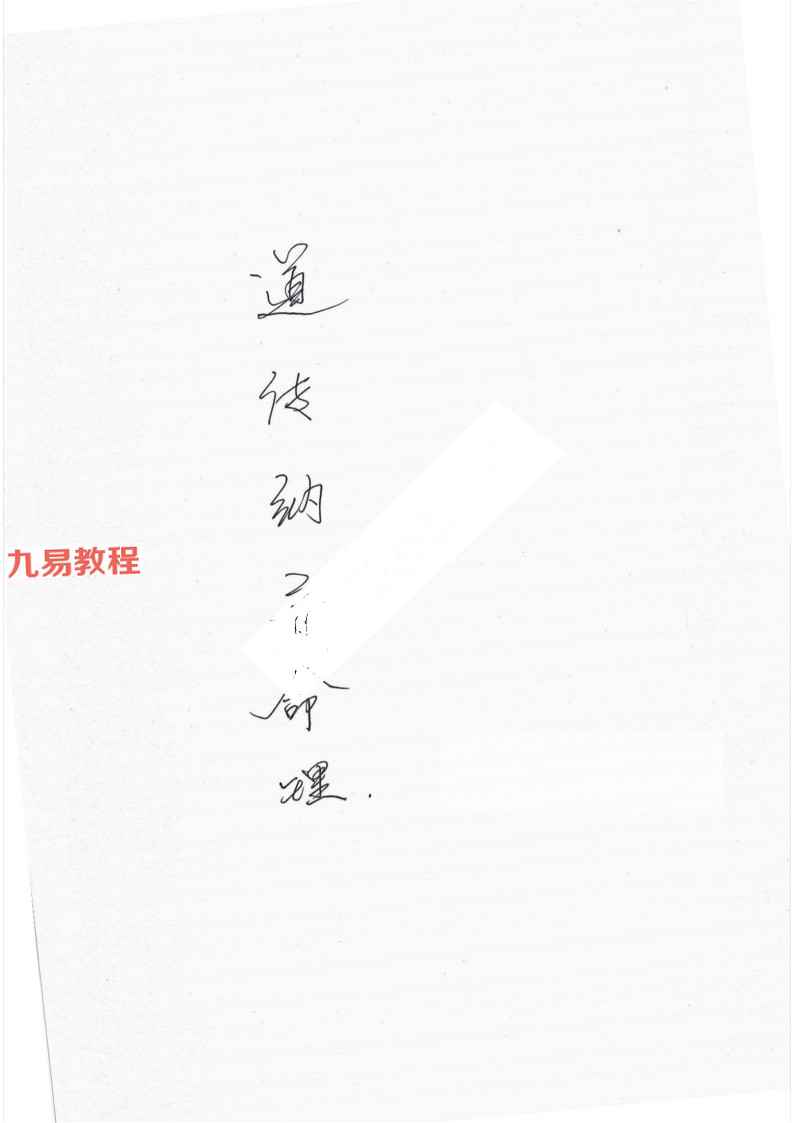 道传纳音命理.
九易教程